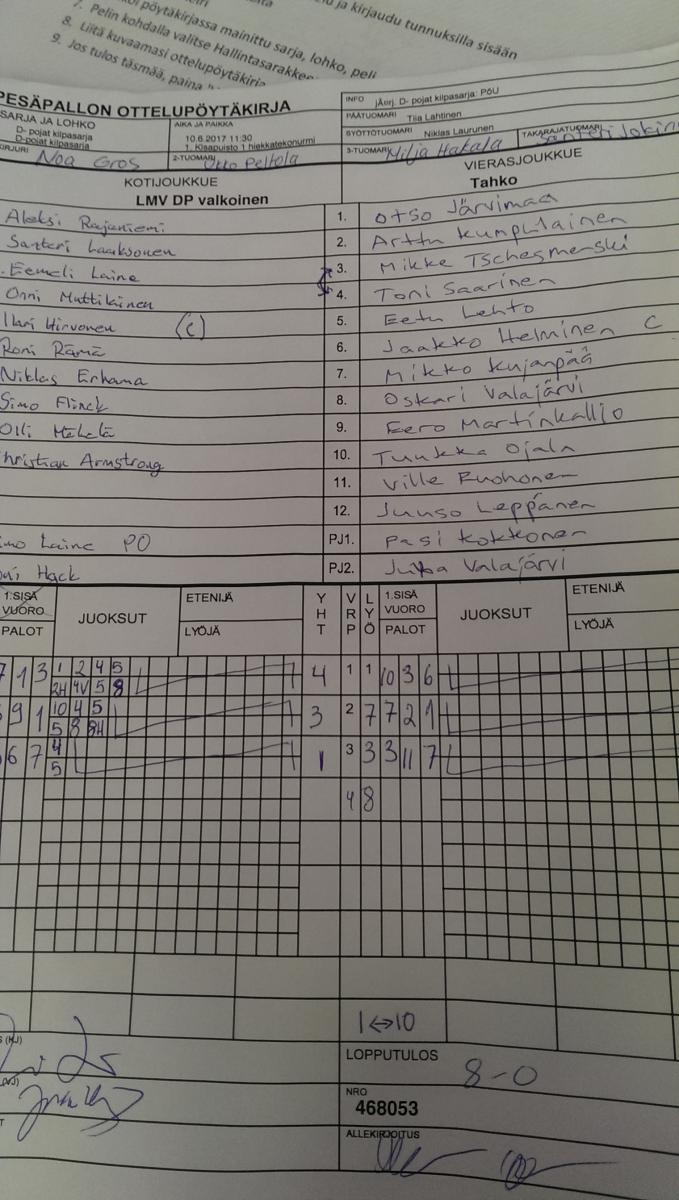 7. Pelin kohdalla valitse Hallintasarakkee
ja kirjaudu tunnuksilla sisään
pöytäkirjassa mainittu sarja, lohko, peli
8. Liitä kuvaamasi ottelupöytäkirja
9. Jos tulos täsmää, paina
PESÄPALLON OTTELUPÖYTÄKIRJA
SARJA JA LOHKO
D- pojat kilpasarja
D-pojat kilpasarja
AIKA JA PAIKKA
10.6.2017 11:30
1. Kisapuisto 1 hiekkatekonurmi
KIRJURI Noa Gros
2-TUOMARI Otto Peltola
INFO jÄorj. D- pojat kilpasarja: PöU
PÄÄTUOMARI Tiia Lahtinen
SYÖTTÖTUOMARI Niklas Laurunen
TAKARAJATUOMARI Santeri Jokin
3-TUOMARI Milja Hakala
KOTIJOUKKUE
LMV DP valkoinen
VIERASJOUKKUE
Tahko
Aleksi Rajaniemi 1. Otso Järvimaa
Santeri Laaksonen 2. Arttu Kumpulainen
Eemeli Laine 3. Mikke Tschesmenski
Onni Muttilainen 4. Toni Saarinen
Ilari Hirvonen (c) 5. Eetu Lehto
Roni Rämä 6. Jaakko Helminen C
Niklas Erhama 7. Mikko Kujanpää
Simo Flinck 8. Oskari Valajärvi
Olli Mäkelä 9. Eero Martinkallio
Christian Armstrong 10. Tuukka Ojala
11. Ville Ruohonen
12. Juuso Leppänen
mo Laine PO PJ1. Pasi Kokkonen
Hack PJ2. Jukka Valajärvi
1.SISÄ VUORO PALOT JUOKSUT ETENIJÄ LYÖJÄ YHT VRP LYÖ 1.SISÄ VUORO PALOT JUOKSUT ETENIJÄ LYÖJÄ
7 1 3 1 2 4 5 4 1 1 10 3 6
2H 4V 5 8
9 1 10 4 5 3 2 7 7 2 1
5 8 8H
6 7 4 1 3 3 3 11 7
5
4 8
1↔10
LOPPUTULOS 8-0
NRO
468053
ALLEKIRJOITUS